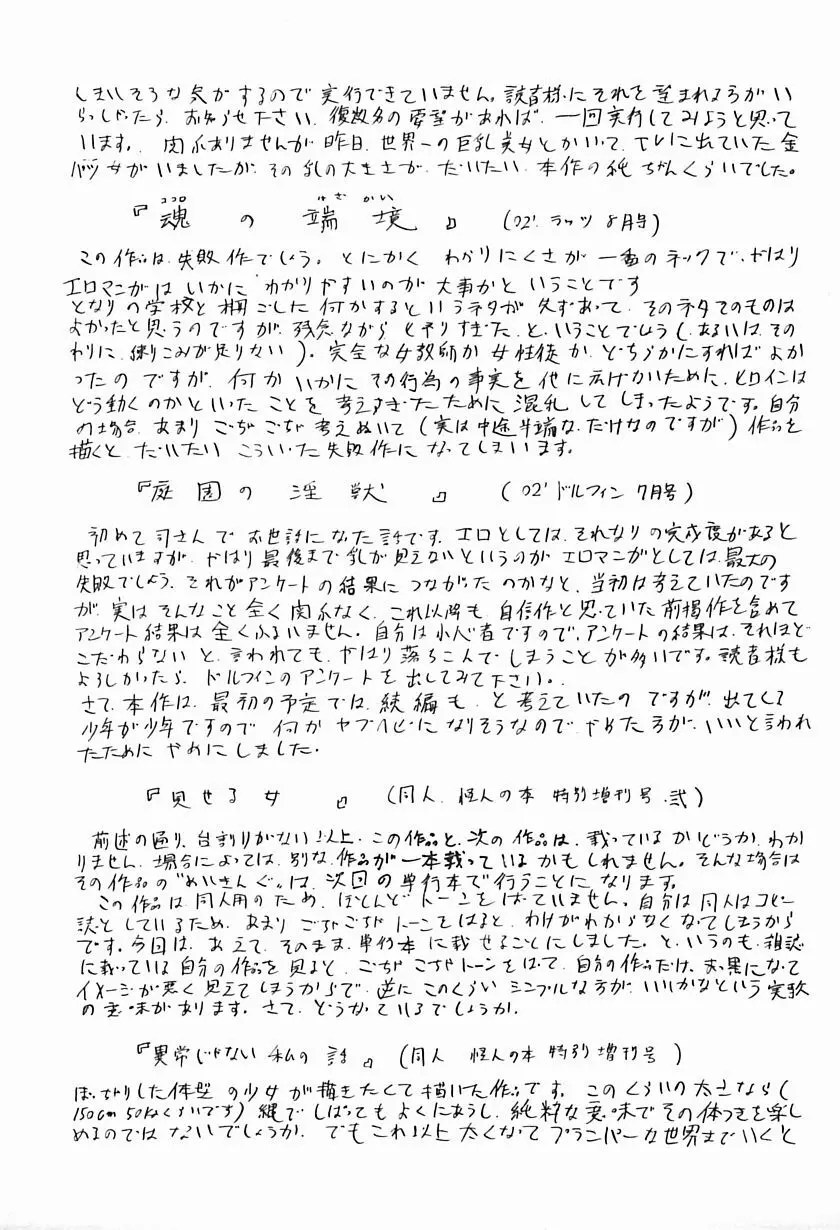 しまいそうな気がするので実行できていません。読者様にそれを望まれる方がい
らっしゃったら、お知らせ下さい。復数分の要望があれば、一回実行してみようと思って
います。関係ありませんが昨日、世界一の巨乳美女とかいって、TVに出ていた金
パツ女がいましたが、その乳の大きさが、だいたい、本作の純ちゃんくらいでした。
ココロ はざかい
『魂の端境』(02'. ラッツ 8月号)
この作品は、失敗作でしょう。とにかく わかりにくさが一番のネックで、やはり
エロマンガは いかに わかりやすいのが 大事かと いうことです
となりの学校と柵ごしに何かするというネタが 先ずあって、そのネタでのものは
よかったと思うのですが、残念ながら ヒネりすぎた、と、いうことでしょう(、あるいは、その
わりに、練りこみが足りない)。完全な女教師か女性徒か、どちらかにすればよか
ったの ですが、何か いかに その行為の事実を他に広げないために、ヒロインは
どう動くのかといった ことを 考えすぎたために 混乱 して しまったようです。自分
の場合、あまり ごちゃごちゃ 考えぬいて(実は中途半端な、だけなのですが)作品を
描くと、だいたい こういった失敗作に なってしまいます。
『庭園の淫獣』(02' ドルフィン 7月号)
初めて司さんで お世話になった話です。エロとしては、それなりの完成度があると
思っていますが、やはり最後まで乳が見えないというのが エロマンガとしては、最大の
失敗でしょう。それがアンケートの結果に つながったのかなと、当初は考えていたのです
が、実は そんなこと全く関係なく、これ以降も、自信作と思っていた前掲作を含めて
アンケート結果は 全くふるいません。自分は小心者ですので、アンケートの結果は、それほど
こだわらないと、言われても、やはり落ちこんでしまうことが多いです。読者様も
よろしかったら、ドルフィンのアンケートを出してみて下さい。
さて、本作は、最初の予定では、続編も、と考えていたの ですが、出てくる
少年が少年ですので 何か ヤブヘビに なりそうなので、やめた方が、いいと言われ
たために やめにしました。
『見せる女』(同人. 怪人の本 特別増刊号.弐)
前述の通り、台割りがない以上、この作品と、次の作品は、載っているかどうか、わか
りません。場合によっては、別な作品が一本載っているかもしれません。そんな場合は
その作品の"めいきんぐ"は、次回の単行本で行うことになります。
この作品は同人用のため、ほとんどトーンをはっていません。自分は同人はコピー
誌としているため、あまりごちゃごちゃ トーンをはると、わけがわからなくなってしまうから
です。今回は、あえて、そのまま、単行本に載せることにしました。と、いうのも、雑誌
に載っている自分の作品を見ると、ごちゃごちゃトーンをはって、自分の作品だけ、まっ黒になって
イメージが悪く見えてしまうからで、逆に このくらい シンプルな方が、いいかなという実験
の意味があります。さて、どうなっているでしょうか。
『異常じゃない私の話』(同人 怪人の本 特別増刊号)